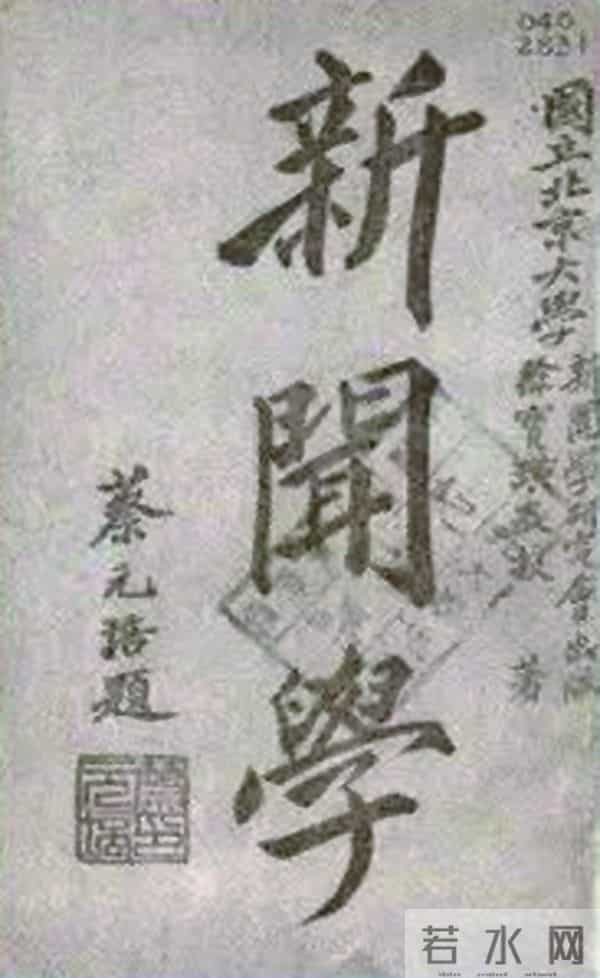 040
國立北京大學
新聞學研究會出版
徐寶璜教授 著
新聞學
蔡元培題
若水网